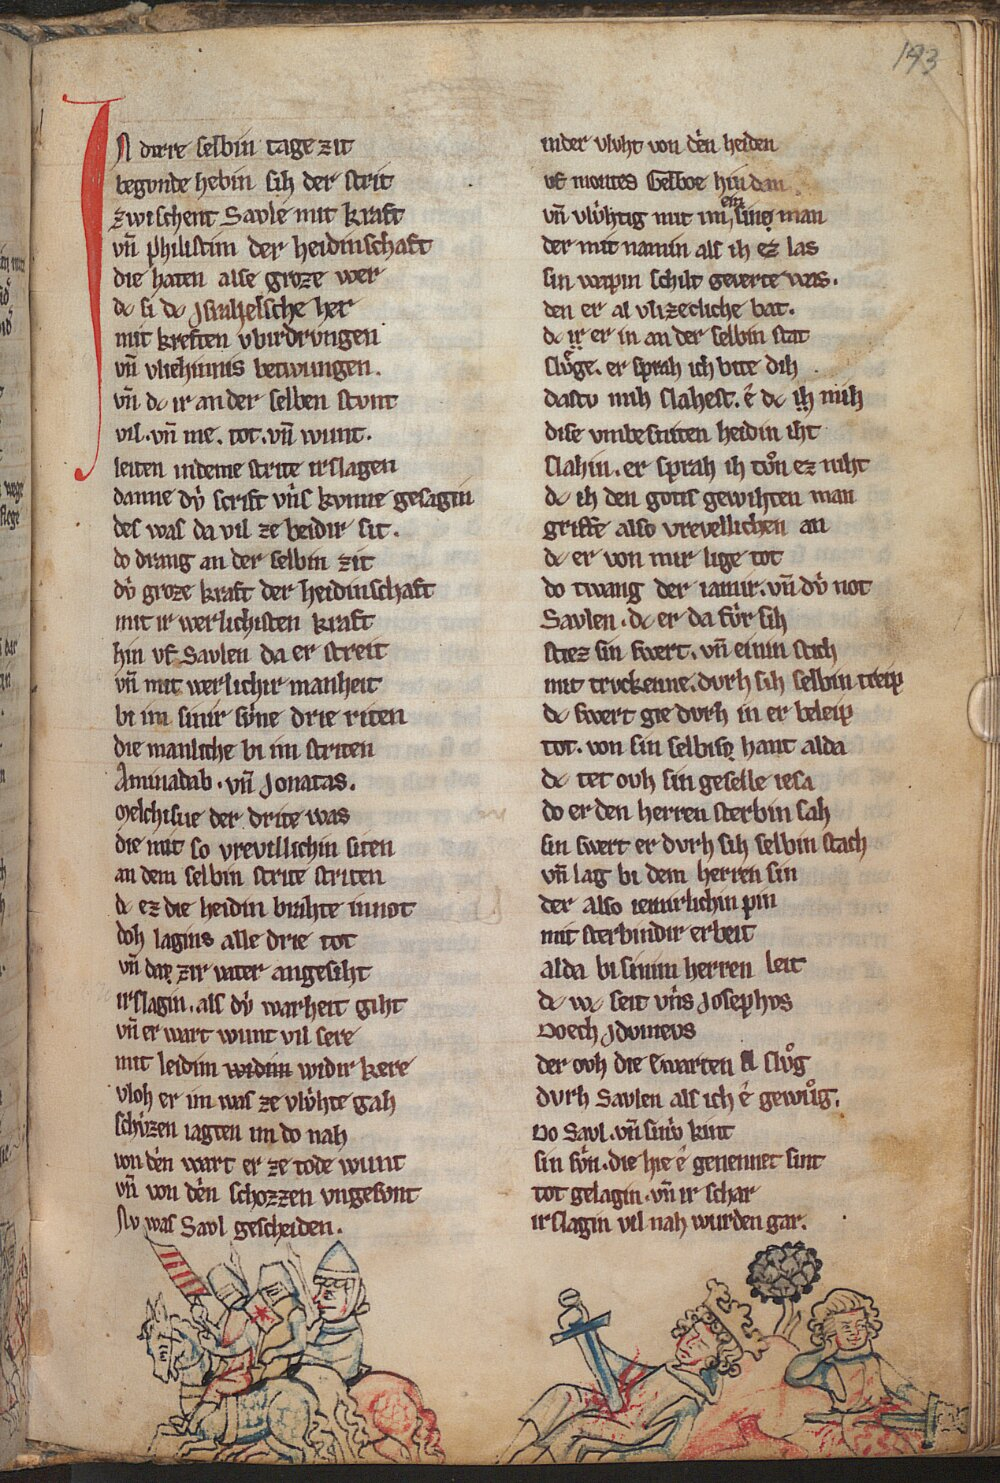 193
IN dirre selbin tage zit
begonde hebin sih der strit
zwischent Savle mit kraft
vn̄ philistim der heidinschaft
die haten alse groze wer
dc si dc Jsrahelsche her
mit kreften vbirdrvngen
vn̄ vliehinnis betwungen.
vn̄ dc ir an der selben stvnt
vil. vn̄ me. tot. vn̄ wunt.
leiten indeme strite irslagen
danne dv́ scrift vn̄s kvnne gesagin
des was da vil ze beidir sit.
do drang an der selbin zit
dv́ groze kraft der heidinschaft
mit ir werlichisten kraft
hin vf Savlen da er streit
vn̄ mit werlichir manheit
bi im sinir sv́ne drie riten
die manliche bi im striten
Aminadab. vn̄ Jonatas.
Melchisue der drite was
die mit so vrevillichin siten
an dem selbin strite striten
dc ez die heidin brahte innot
doh lagins alle drie tot
vn̄ dar zir vater angesiht
irslagin. als dv́ warheit giht
vn̄ er wart wunt vil sere
mit leidim widim widir kere
vloh er im was ze vlv́hte gah
schv́zen iagten im do nah
von dēn wart er ze tode wunt
vn̄ von dēn schozzen vngesvnt
Nv was Savl gescheiden.
inder vlvht von dēn heiden
vf montes Gelboe hin dan
vn̄ vlv́htig mit im ein sing man
der mit namin als ih ez las
sin wapin schilt geverte was.
den er al vlizecliche bat.
dc ir er in an der selbin stat
slv̊ge. er sprah ich bite dih
dastv mih slahest. ê dc ih mih
dise vmbesniten heidin iht
slahin. er sprah ih tv̊n ez niht
dc ih den gotis gewihten man
griffe also vrevellichen an
dc er von mir lige tot
do twang der iamir. vn̄ dv́ not
Savlen. dc er da fv́r sih
stiez sin swert. vn̄ einin stich
mit trvckenne. dvrh sih selbin treip
dc swert gie dvrh in er beleip
tot. von sin selbis hant alda
dc tet ovh sin geselle iesa
do er den herren sterbin sah
sin swert er dvrh sih selbin stach
vn̄ lag bi dem herren sin
der also iemirlichin pin
mit sterbindir erbeit
alda bi sinim herren leit
dc wc seit vn̄s Josephvs
Doech Jdvmevs
der ovh die ewarten slv̊g
dvrh Savlen als ich ê gewv̊g.
Do Savl. vn̄ sinv́ kint
sin sv́n. die hie ê genennet sint
tot gelagin. vn̄ ir schar
irslagin vil nah wurden gar.